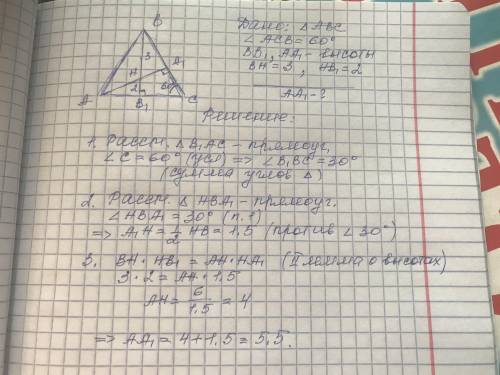 B
3
A₁
H
2
60°
A
B₁
C
Дано: △ABC
∠ACB = 60°
BB₁, AA₁ - высоты
BH = 3, HB₁ = 2
AA₁ - ?
Решение:
1. Рассм. △B₁AC - прямоуг,
∠C = 60° (усл) => ∠B₁BC = 30°
(сумма углов △)
2. Рассм. △ HBA₁ - прямоуг.
∠HBA₁ = 30° (п.1)
=> A₁H = 1/2 HB = 1,5 (против ∠30°)
3. BH · HB₁ = AH · HA₁ (II лемма о высотах)
3 · 2 = AH · 1,5
AH = 6/1,5 = 4
=> AA₁ = 4 + 1,5 = 5,5.